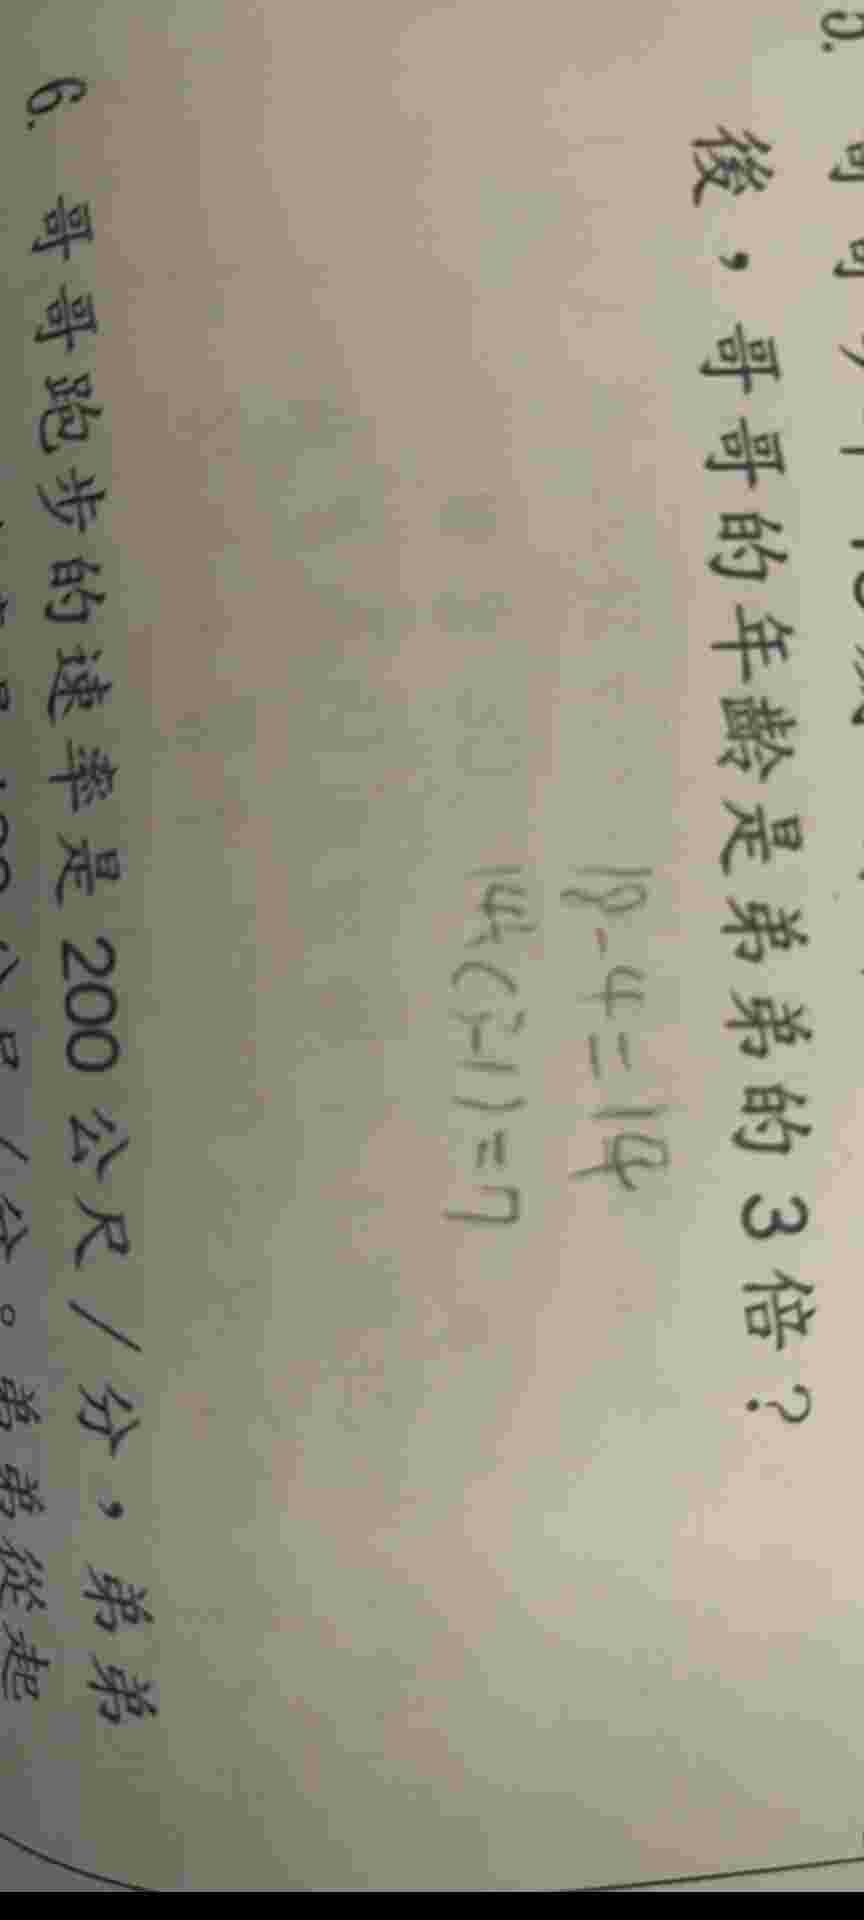 5. 哥哥今年18歲
後，哥哥的年齡是弟弟的3倍？
18-4=14
14÷(3-1)=7
6. 哥哥跑步的速率是200公尺/分，弟弟
公尺/分。弟弟從起